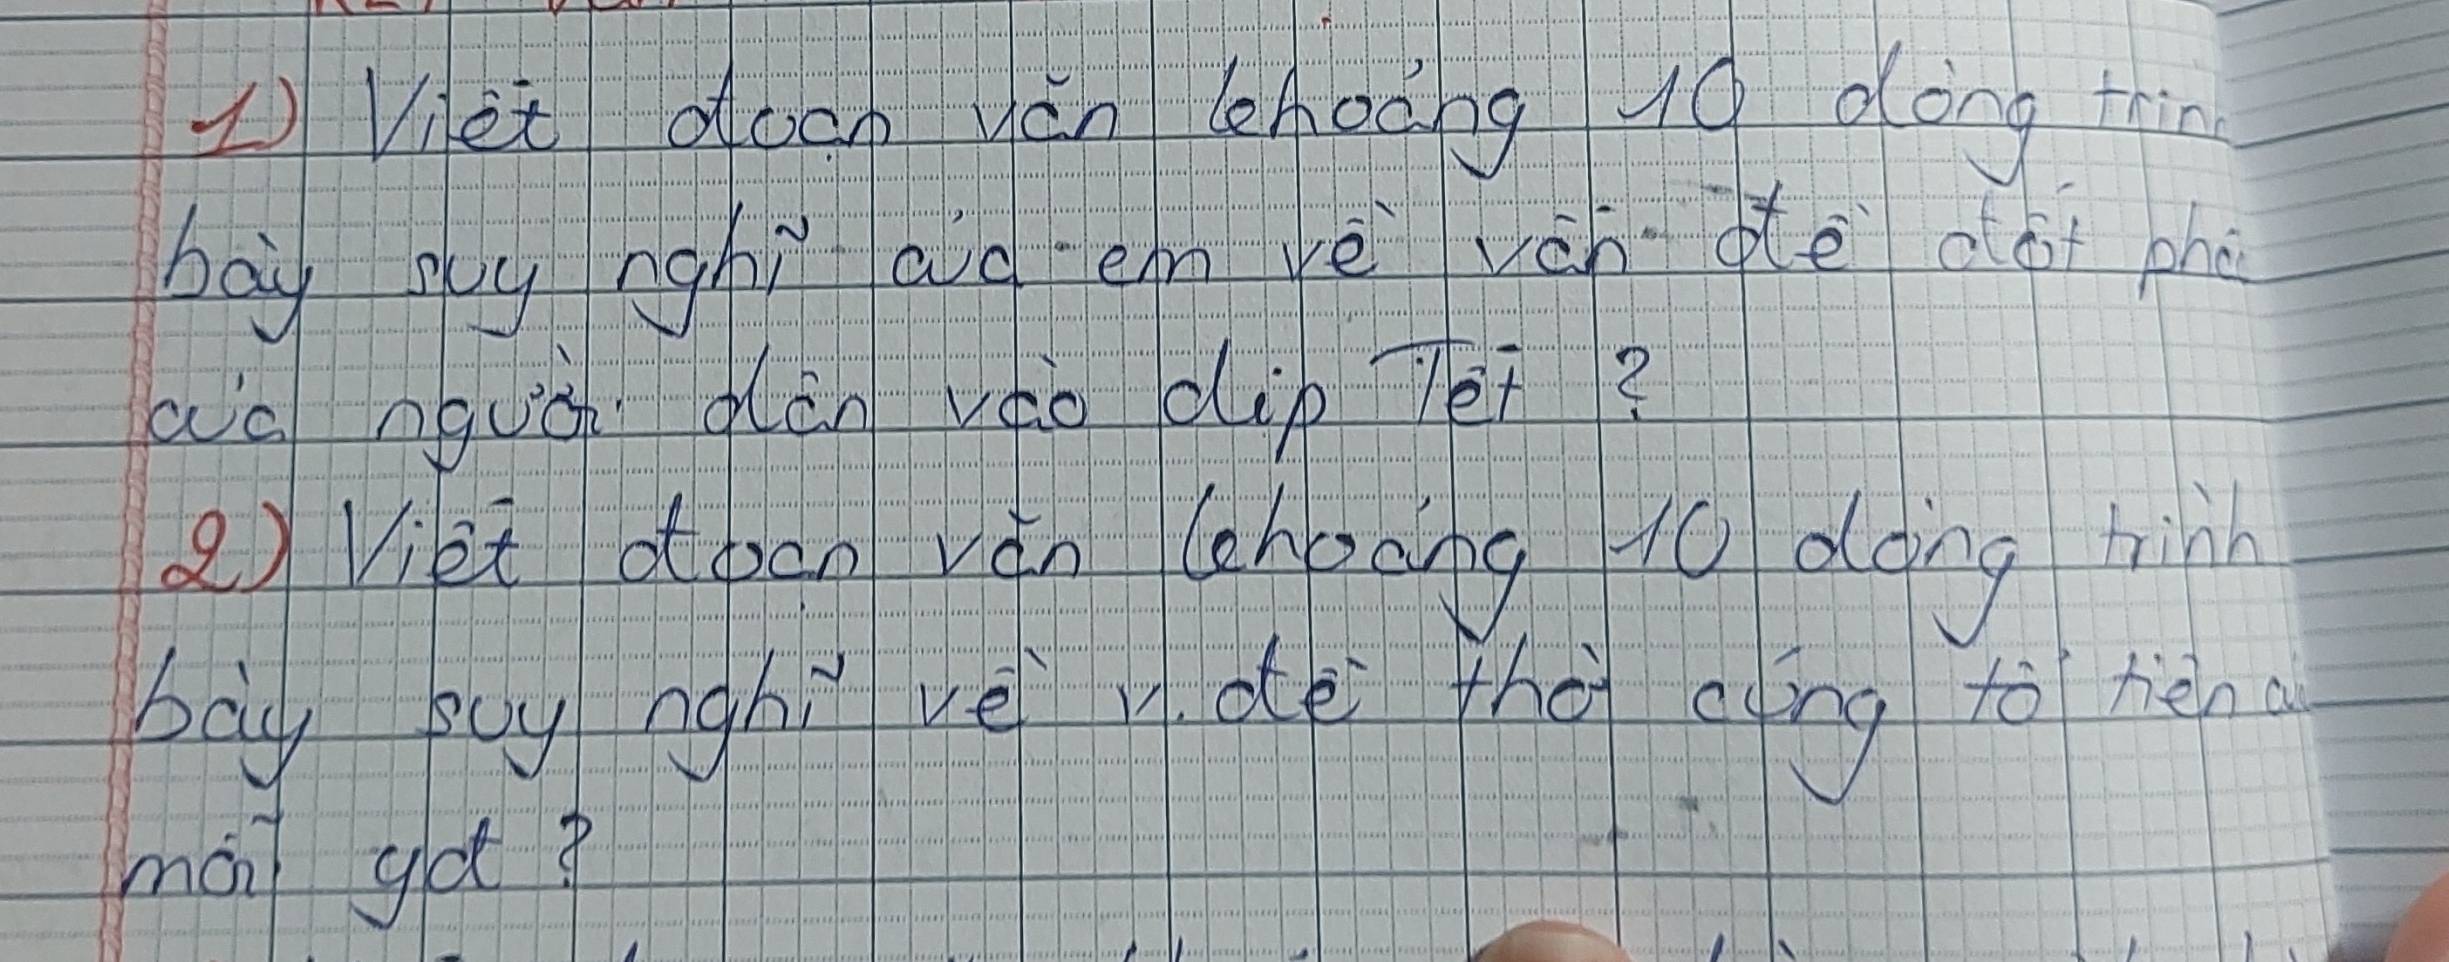 1) Viết đoạn văn khoảng 10 dòng trình
bày suy nghĩ của em về vấn đề đốt pháo
của người dân vào dịp Tết ?
2) Viết đoạn văn khoảng 10 dòng trình
bày suy nghĩ về v.đề thờ cúng tổ tiên của
mỗi gđ ?